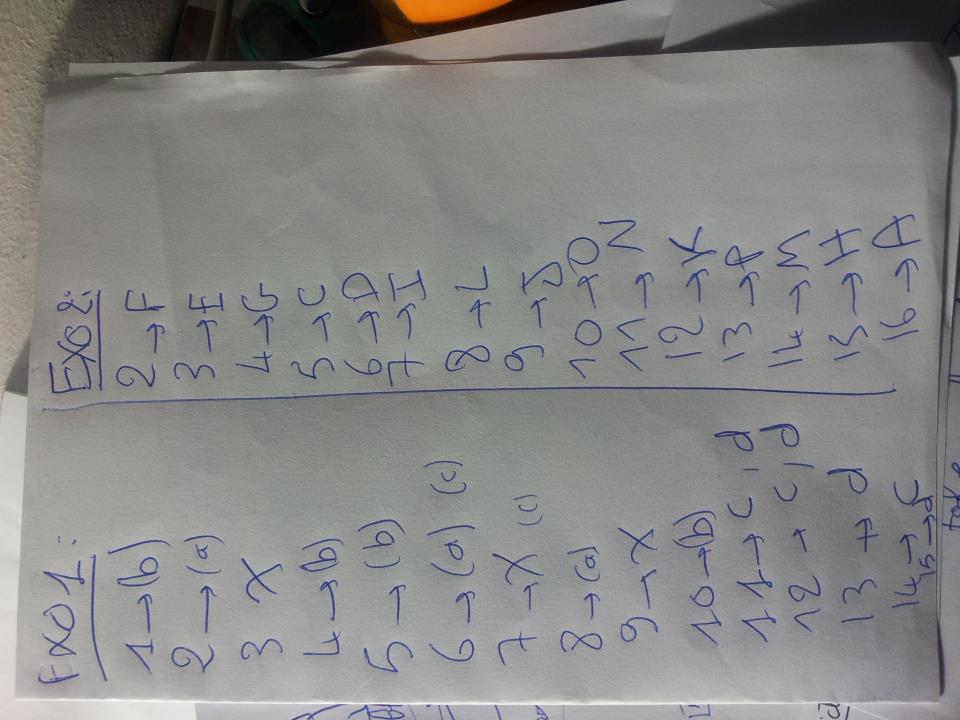 Exo 1:
1 → (b)
2 → (a)
3 X
4 → (b)
5 → (b)
6 → (a) (c)
7 → X (c)
8 → (a)
9 → X
10 → (b)
11 → c, d
12 → c, d
13 → d
14 → c
15 → d
Exo 2:
2 → F
3 → E
4 → G
5 → C
6 → D
7 → I
8 → L
9 → J
10 → O
11 → N
12 → K
13 → P
14 → M
15 → H
16 → A